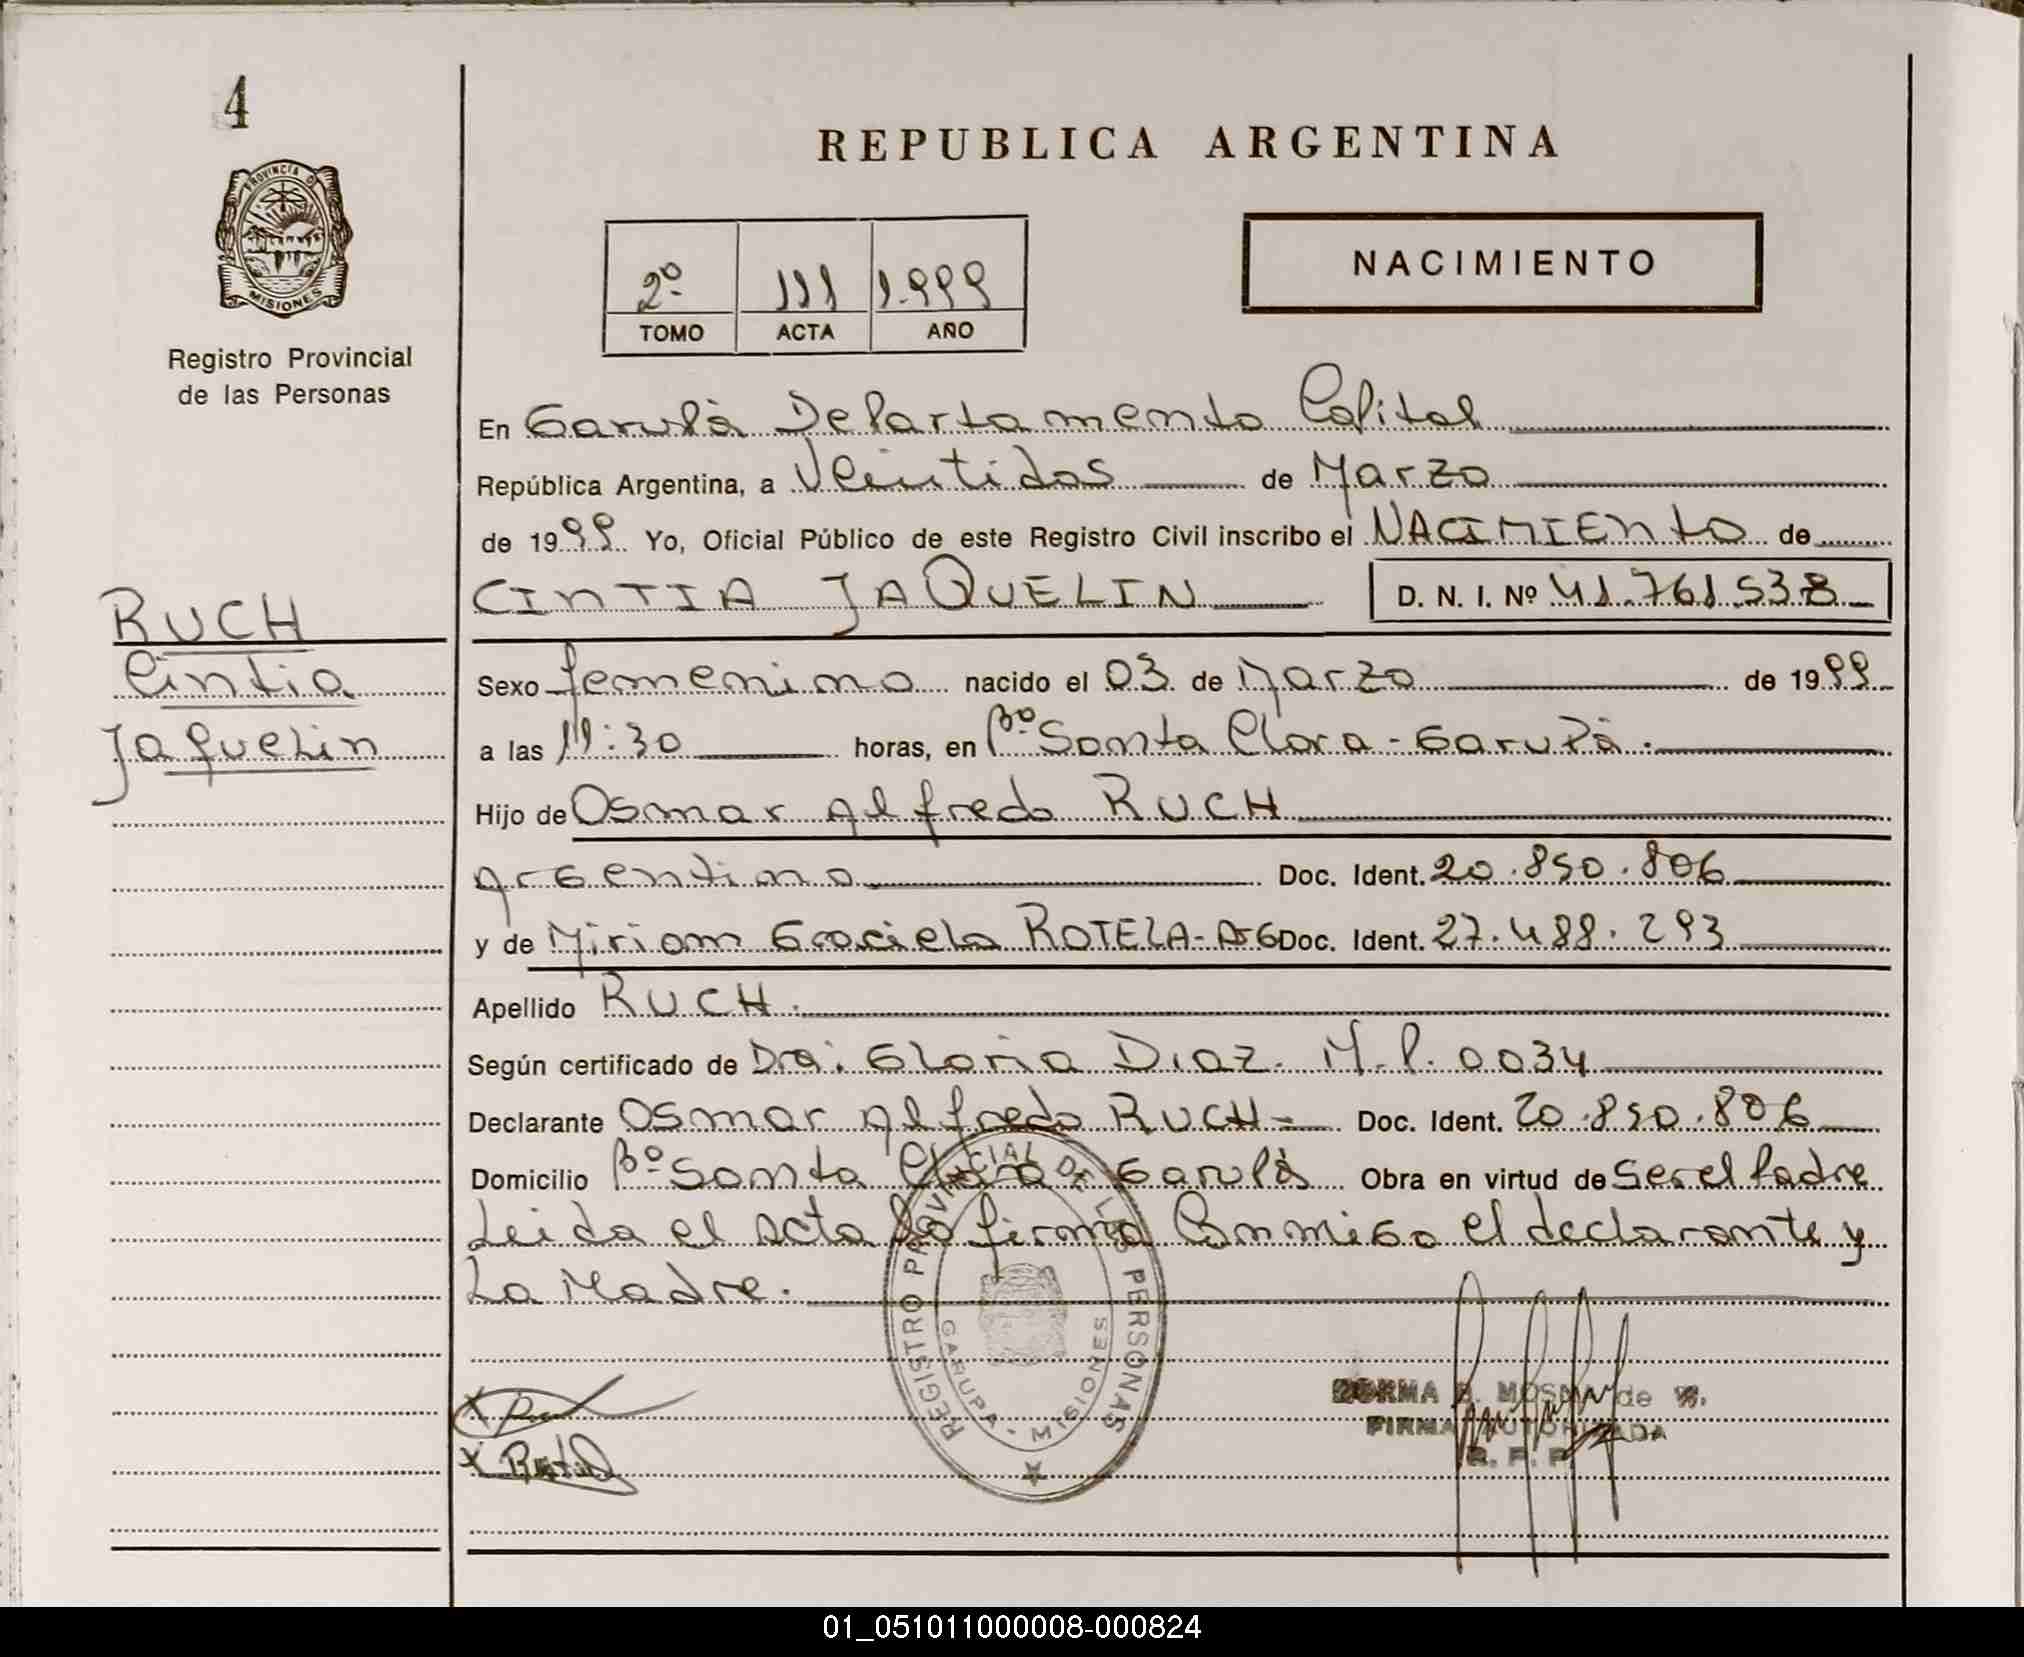 4
PROVINCIA D
MISIONES
Registro Provincial
de las Personas
RUCH
Cintia
Jaquelin
REPUBLICA ARGENTINA
2º 111 1.999
TOMO ACTA AÑO
NACIMIENTO
En Garupà Departamento Capital
República Argentina, a Veintidos de Marzo
de 1999 Yo, Oficial Público de este Registro Civil inscribo el NACIMIENTO de
CINTIA JAQUELIN D. N. I. Nº 41.761.538
Sexo femenino nacido el 03 de Marzo de 1999
a las 11:30 horas, en Bº Santa Clara - Garupà.
Hijo de Osmar Alfredo RUCH
Argentino Doc. Ident. 20.850.806
y de Miriam Graciela ROTELA - ArG Doc. Ident. 27.488.293
Apellido RUCH.
Según certificado de Dra: Gloria Diaz. M.P. 0034
Declarante Osmar Alfredo RUCH - Doc. Ident. 20.850.806
Domicilio Bº Santa Clara Garupà Obra en virtud de ser el Padre
Leida el acta la firma Conmigo el declarante y
La Madre.
REGISTRO PROVINCIAL DE LAS PERSONAS
GARUPA - MISIONES
NORMA B. de
FIRMA AUTORIZADA
R. P. P.
01_051011000008-000824